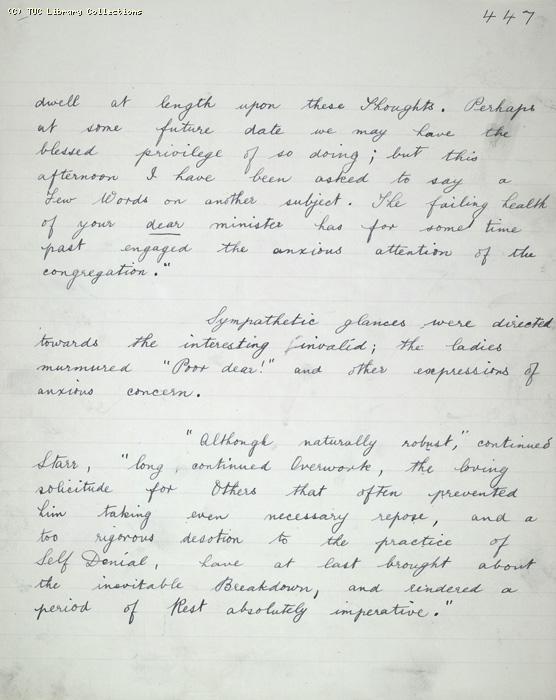 (C) TUC Library Collections
447
dwell at length upon these Thoughts. Perhaps
at some future date we may have the
blessed privilege of so doing; but this
afternoon I have been asked to say a
Few Words on another subject. The failing health
of your dear minister has for some time
past engaged the anxious attention of the
congregation."
Sympathetic glances were directed
towards the interesting invalid; the ladies
murmured "Poor dear!" and other expressions of
anxious concern.
"Although naturally robust," continued
Starr, "long continued Overwork, the loving
solicitude for Others that often prevented
him taking even necessary repose, and a
too rigorous devotion to the practice of
Self Denial, have at last brought about
the inevitable Breakdown, and rendered a
period of Rest absolutely imperative."